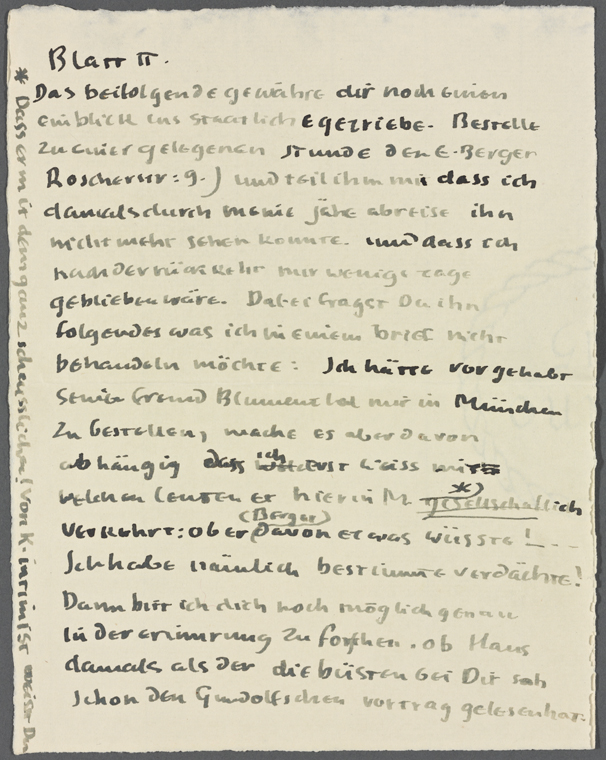 Blatt II.
Das beifolgende gewähre dir noch einen
einblick ins staatliche getriebe. Bestelle
zu einer gelegenen stunde den E. Berger
Roscherstr: 9.) und teil ihm mit dass ich
damals durch meine jähe abreise ihn
nicht mehr sehen konnte. und dass ich
nach der rückkehr nur wenige tage
geblieben wäre. Dabei fragst Du ihn
folgendes was ich in einem brief nicht
behandeln möchte: Ich hätte vorgehabt
seinen freund Blumenthal mir in München
zu bestellen, mache es aber davon
abhängig dass ich erst weiss mit
welchen leuten er hier in M. gesellschaftlich *)
verkehrt: ob er (Berger) davon etwas wüsste! ...
Ich habe nämlich bestimmte verdächte!
Dann bitt ich dich noch möglich genau
in der erinnrung zu forschen. ob Hans
damals als der die büsten bei Dir sah
schon den Gundolfschen vortrag gelesen hat:
* Dass er mit dem ganz scheusslichen! Von K- intim ist weisst Du